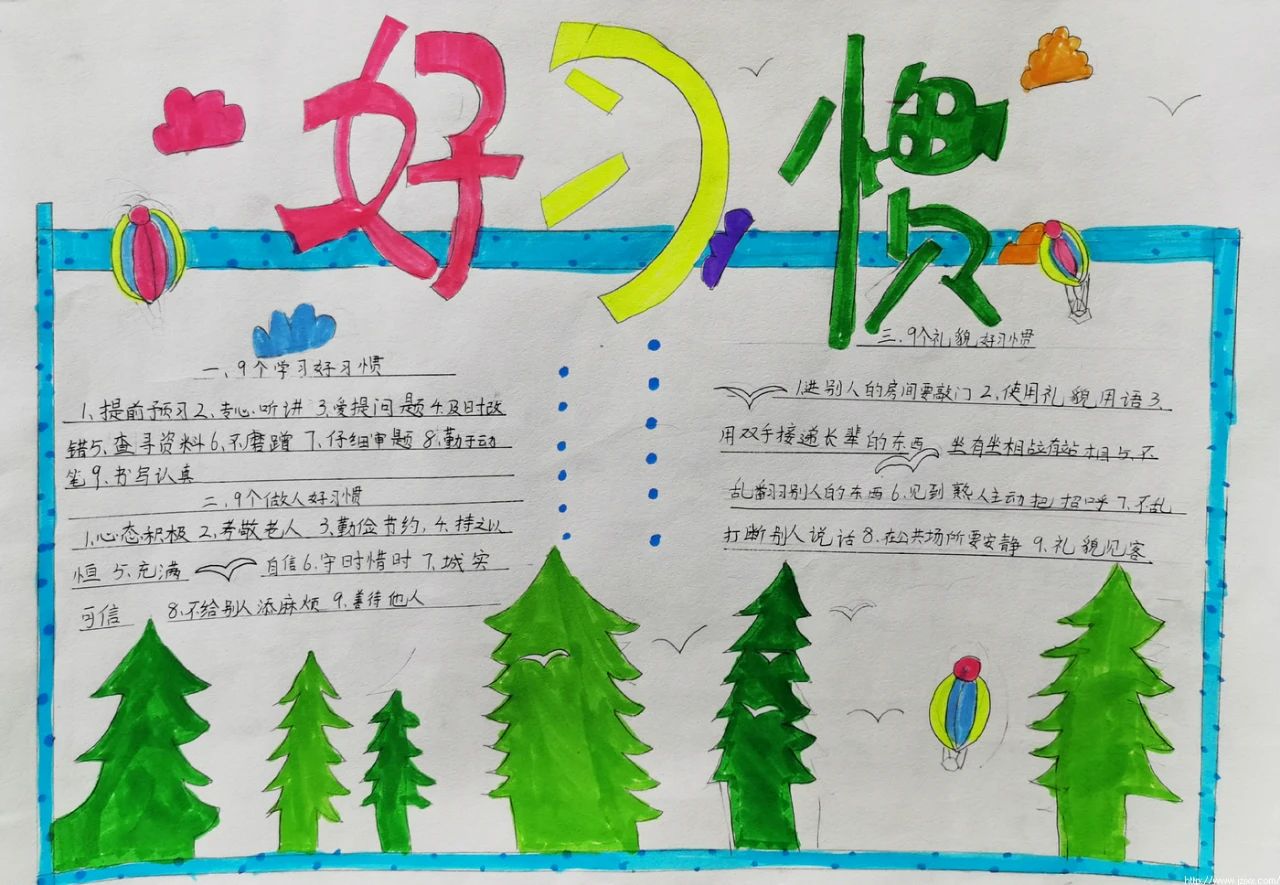 好习惯
一、9个学习好习惯
1、提前预习2、专心听讲 3、爱提问题4、及时改
错5、查寻资料6、不磨蹭 7、仔细审题 8、勤于动
笔9、书写认真
二、9个做人好习惯
1、心态积极 2、孝敬老人 3、勤俭节约，4、持之以
恒 5、充满 自信6、守时惜时 7、城实
可信 8、不给别人添麻烦 9、善待他人
三、9个礼貌好习惯
1、进别人的房间要敲门 2、使用礼貌用语3、
用双手接递长辈的东西 坐有坐相站有站相 5、不
乱翻别人的东西 6、见到熟人主动把招呼 7、不乱
打断别人说话 8、在公共场所要安静 9、礼貌见客